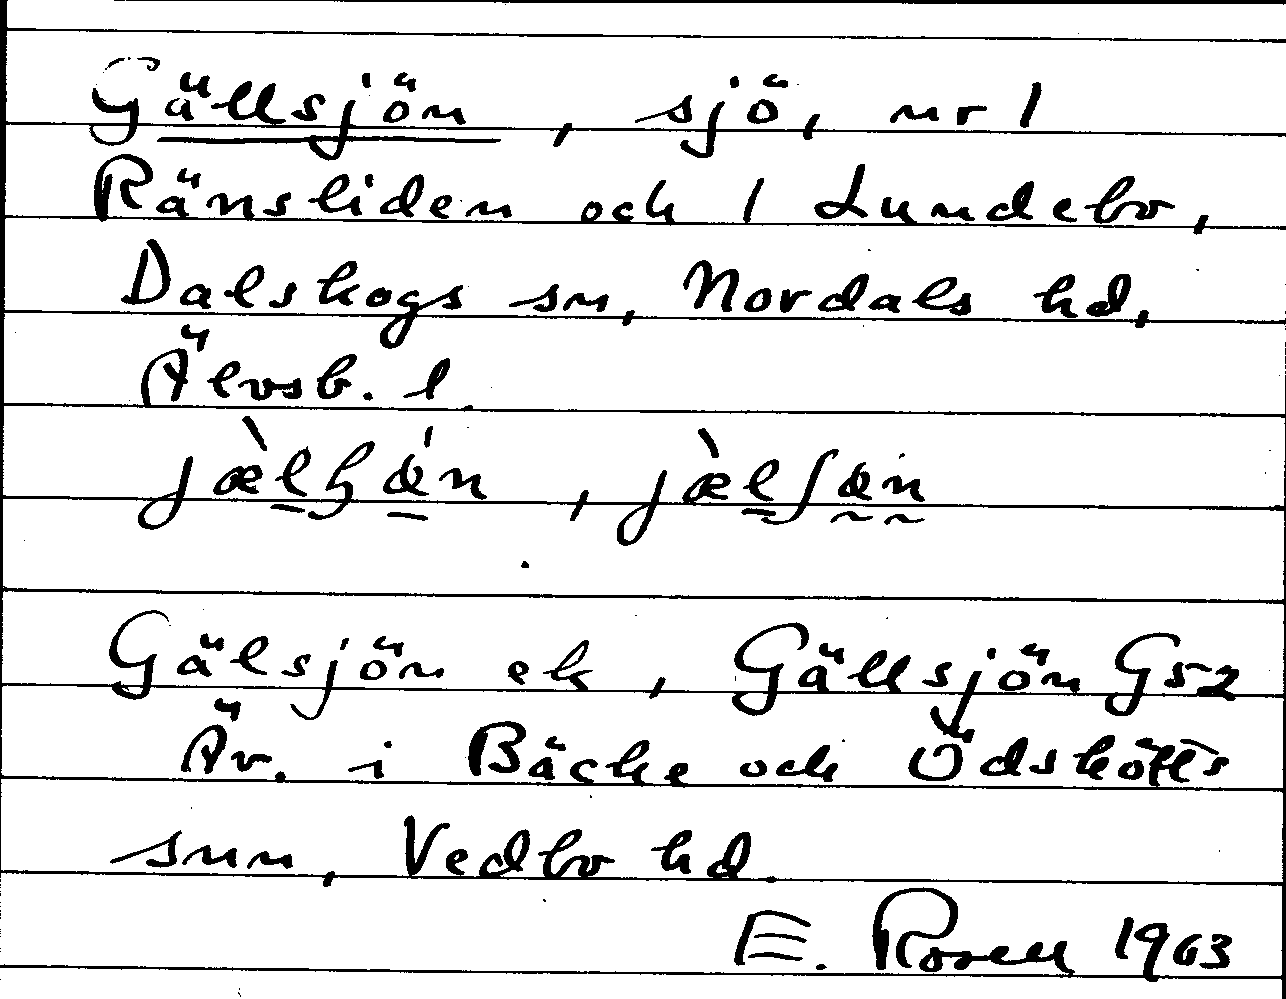 Gällsjön, sjö, nr 1
Ränsliden och 1 Lundebo,
Dalskogs sn, Nordals hd,
Älvsb. l.
Gälsjön ek, Gällsjön G52
Äv. i Bäcke och Ödskölts
snn, Vedbo hd.
E. Rosell 1963